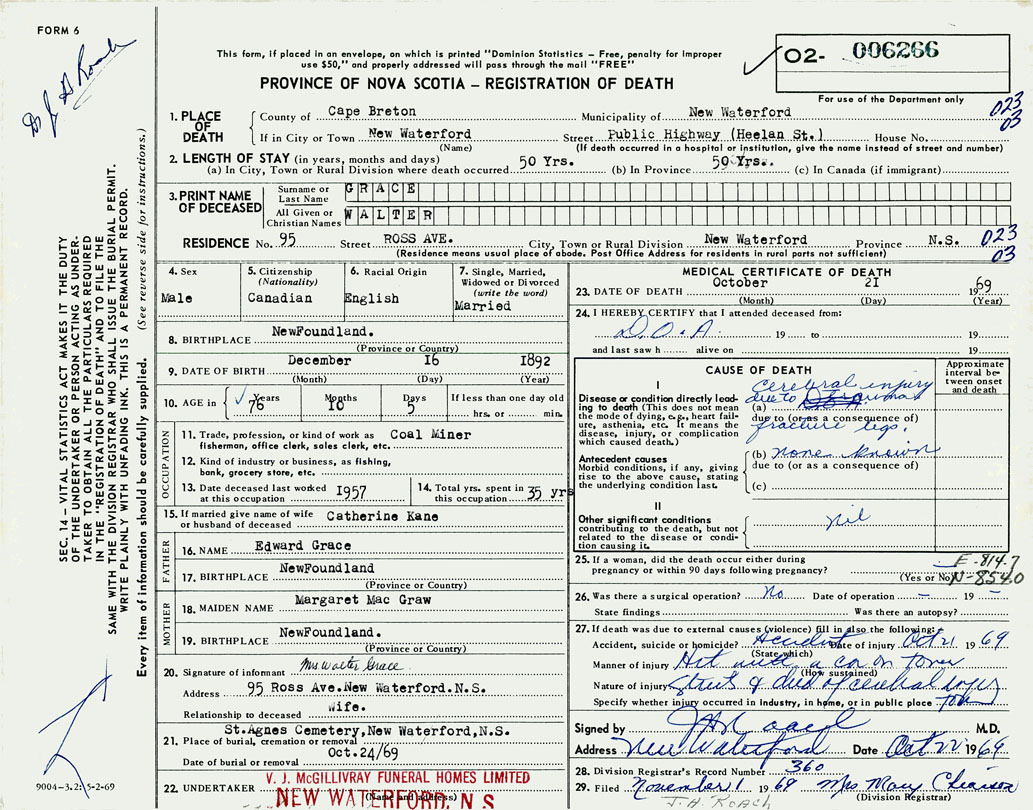 FORM 6
This form, if placed in an envelope, on which is printed "Dominion Statistics – Free, penalty for improper
use $50," and properly addressed will pass through the mail "FREE"
PROVINCE OF NOVA SCOTIA – REGISTRATION OF DEATH
O2- 006266
For use of the Department only
023
03
1. PLACE OF DEATH County of Cape Breton Municipality of New Waterford
If in City or Town New Waterford Street Public Highway (Heelan St.) House No.
(Name) (If death occurred in a hospital or institution, give the name instead of street and number)
2. LENGTH OF STAY (in years, months and days)
(a) In City, Town or Rural Division where death occurred 50 Yrs. (b) In Province 50 Yrs. (c) In Canada (if immigrant)
3. PRINT NAME OF DECEASED Surname or Last Name GRACE
All Given or Christian Names WALTER
RESIDENCE No. 95 Street ROSS AVE. City, Town or Rural Division New Waterford Province N.S. 023
(Residence means usual place of abode. Post Office Address for residents in rural parts not sufficient) 03
4. Sex 5. Citizenship (Nationality) 6. Racial Origin 7. Single, Married, Widowed or Divorced (write the word)
Male Canadian English Married
8. BIRTHPLACE NewFoundland.
(Province or Country)
9. DATE OF BIRTH December 16 1892
(Month) (Day) (Year)
10. AGE in Years Months Days If less than one day old
76 10 5 hrs. or min.
OCCUPATION
11. Trade, profession, or kind of work as Coal Miner
fisherman, office clerk, sales clerk, etc.
12. Kind of industry or business, as fishing,
bank, grocery store, etc.
13. Date deceased last worked at this occupation 1957 14. Total yrs. spent in this occupation 35 yrs
15. If married give name of wife or husband of deceased Catherine Kane
FATHER
16. NAME Edward Grace
17. BIRTHPLACE NewFoundland
(Province or Country)
MOTHER
18. MAIDEN NAME Margaret Mac Graw
19. BIRTHPLACE NewFoundland.
(Province or Country)
20. Signature of informant Mrs Walter Grace
Address 95 Ross Ave.New Waterford.N.S.
Relationship to deceased Wife.
St.Agnes Cemetery,New Waterford,N.S.
21. Place of burial, cremation or removal
Date of burial or removal Oct.24/69
22. UNDERTAKER V. J. McGILLIVRAY FUNERAL HOMES LIMITED
(Name and address)
NEW WATERFORD, N S
MEDICAL CERTIFICATE OF DEATH
23. DATE OF DEATH October 21 1969
(Month) (Day) (Year)
24. I HEREBY CERTIFY that I attended deceased from:
D.O.A. 19 to 19
and last saw h alive on 19
CAUSE OF DEATH
Approximate interval between onset and death
I
Disease or condition directly leading to death (This does not mean the mode of dying, e.g., heart failure, asthenia, etc. It means the disease, injury, or complication which caused death.)
Cerebral injury
(a) due to trauma
due to (or as a consequence of)
fracture legs.
Antecedent causes
Morbid conditions, if any, giving rise to the above cause, stating the underlying condition last.
(b) none known
due to (or as a consequence of)
(c)
II
Other significant conditions
contributing to the death, but not related to the disease or condition causing it.
nil
25. If a woman, did the death occur either during
pregnancy or within 90 days following pregnancy?
(Yes or No)
E-814.7
N-854.0
26. Was there a surgical operation? No Date of operation – 19 –
State findings Was there an autopsy?
27. If death was due to external causes (violence) fill in also the following:
Accident, suicide or homicide? Accident Date of injury Oct 21 1969
(State which)
Manner of injury Hit with a car on town
(How sustained)
Nature of injury Street & died of cerebral injury
Specify whether injury occurred in industry, in home, or in public place town
Signed by J A Roach M.D.
Address New Waterford Date Oct 22 1969
28. Division Registrar's Record Number 360
29. Filed November 1 1969 Mrs Mary
(Division Registrar)
J. A. ROACH
Dr J A Roach
SEC. 14 – VITAL STATISTICS ACT MAKES IT THE DUTY
OF THE UNDERTAKER OR PERSON ACTING AS UNDER-
TAKER TO OBTAIN ALL THE PARTICULARS REQUIRED
IN THE "REGISTRATION OF DEATH" AND TO FILE THE
SAME WITH THE DIVISION REGISTRAR WHO SHALL ISSUE THE BURIAL PERMIT.
WRITE PLAINLY WITH UNFADING INK. THIS IS A PERMANENT RECORD.
Every item of information should be carefully supplied. (See reverse side for instructions.)
9004-3.2: 5-2-69